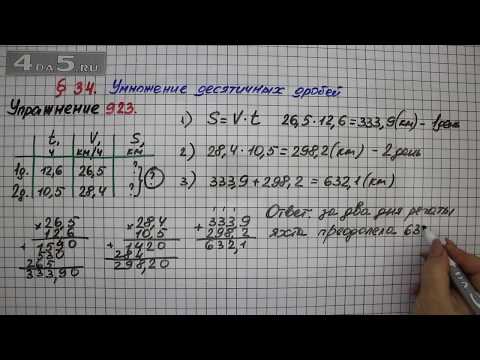 4DA5.RU
§ 34. Умножение десятичных дробей
Упражнение 923.
t, ч | V, км/ч | S, км
1д. | 12,6 | 26,5 | ?
2д. | 10,5 | 28,4 | ?
?
1) S = V · t 26,5 · 12,6 = 333,9 (км) - 1 день
2) 28,4 · 10,5 = 298,2 (км) - 2 день
3) 333,9 + 298,2 = 632,1 (км)
× 26,5
12,6
+ 1590
530
265
333,90
× 28,4
10,5
+ 1420
284
298,20
+ 333,9
298,2
632,1
Ответ: за два дня регаты
яхта преодолела 63